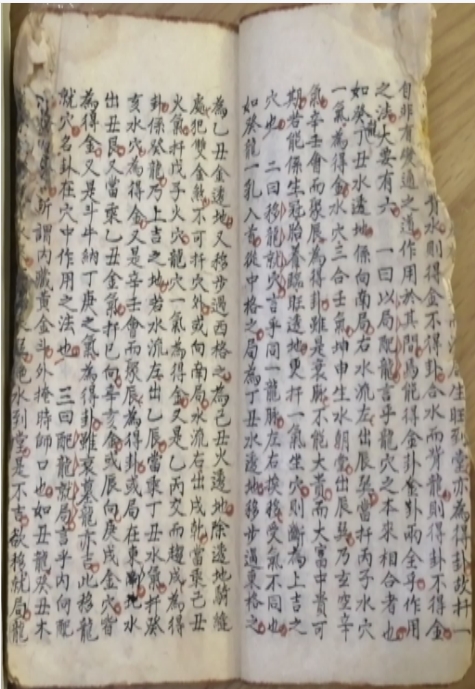 生旺到堂亦為得卦故扦一
水則得金不得卦合水而背龍則得卦不得金
自非有變通之道作用於其間焉能得金卦卦兩全乎作用
之法大要有六 一曰以局配龍言乎龍穴之本來相合者也
如癸龍丁丑水遶地係向南局右水流左出辰巽當扦丙子水穴
一氣為得金水穴三合壬氣坤申生水朝堂出辰巽乃玄空辛
氣辛壬會而聚辰為得卦雖是衰脈不能大貴而大富中貴可
期若能係生冠胎養臨旺遶地更扦一氣坐穴則斷為上吉之
穴也 二曰移龍就穴言乎同一龍勝左右挨移受氣不同也
如癸龍一乳入首從中格之局為丁丑水遶地移步過東格之
為乙丑金遶地又移步過西格之為己丑火遶地除遶地騎縫
處犯雙金煞不可扦穴外或向南局水流右出戌乾當乘己丑
火氣扦戊子火穴龍穴一氣為得金又是乙丙交而趨戌為得
卦係癸龍乃上吉之地若水流左出乙辰當乘丁丑水氣扦癸
亥水穴為得金又是辛壬會而聚辰為得卦或局在東北水
出丑艮又當乘乙丑金氣扦巳向辛亥金或辰向庚戌金穴皆
為得金又是斗牛納丁庚之氣為得卦雖衰墓龍亦吉此移龍
就穴名卦在穴中作用之法也 三曰配龍就局言乎內何配
所謂內藏黃金斗外掩時師口也如丑龍癸丑木
水到堂是不吉欲移就局龍